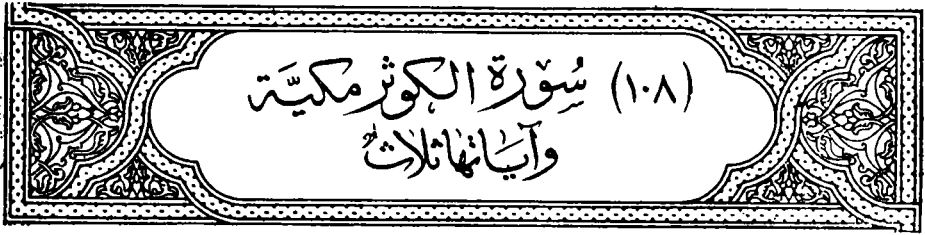 (١٠٨) سُوْرَة الكَوثر مكيَّة
وآيَاتها ثلاثٌ